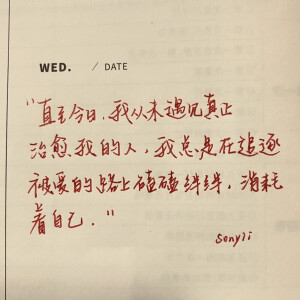 WED. / DATE
"直至今日，我从未遇见真正
治愈我的人，我总是在追逐
被爱的路上磕磕绊绊，消耗
着自己."